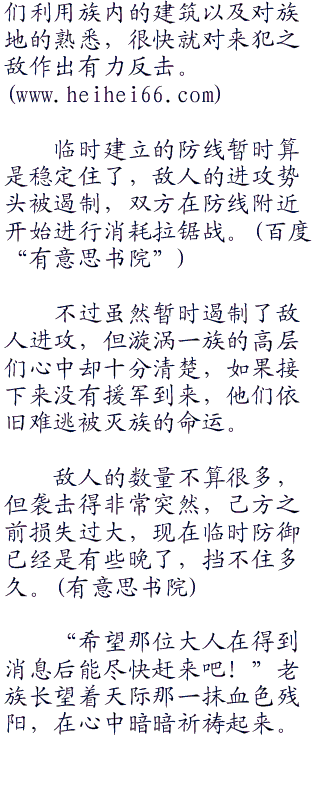 们利用族内的建筑以及对族
地的熟悉，很快就对来犯之
敌作出有力反击。
(www.heihei66.com)
临时建立的防线暂时算
是稳定住了，敌人的进攻势
头被遏制，双方在防线附近
开始进行消耗拉锯战。(百度
“有意思书院”)
不过虽然暂时遏制了敌
人进攻，但漩涡一族的高层
们心中却十分清楚，如果接
下来没有援军到来，他们依
旧难逃被灭族的命运。
敌人的数量不算很多，
但袭击得非常突然，己方之
前损失过大，现在临时防御
已经是有些晚了，挡不住多
久。(有意思书院)
“希望那位大人在得到
消息后能尽快赶来吧！”老
族长望着天际那一抹血色残
阳，在心中暗暗祈祷起来。